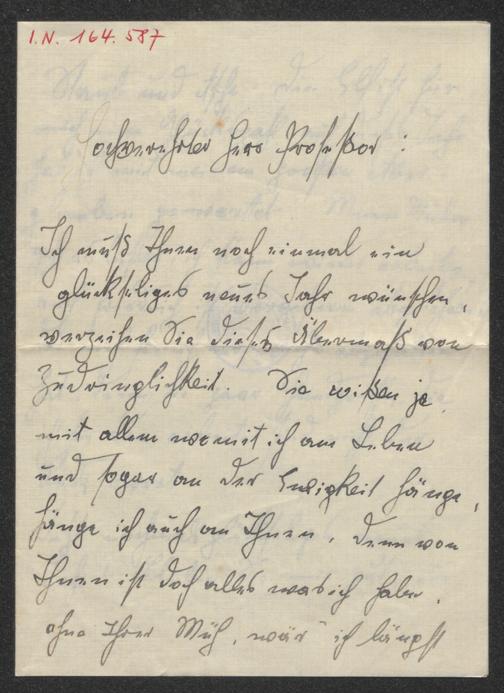 I.N. 164.587
Hochverehrter Herr Professor:
Ich muß Ihnen noch einmal ein
glückseliges neues Jahr wünschen,
verzeihen Sie dieses Übermaß von
Zudringlichkeit. Sie wißen ja,
mit allem womit ich am Leben
und sogar an der Ewigkeit hänge,
hänge ich auch an Ihnen, denn von
Ihnen ist doch alles was ich habe,
ohne Ihrer Müh, wär ich längst